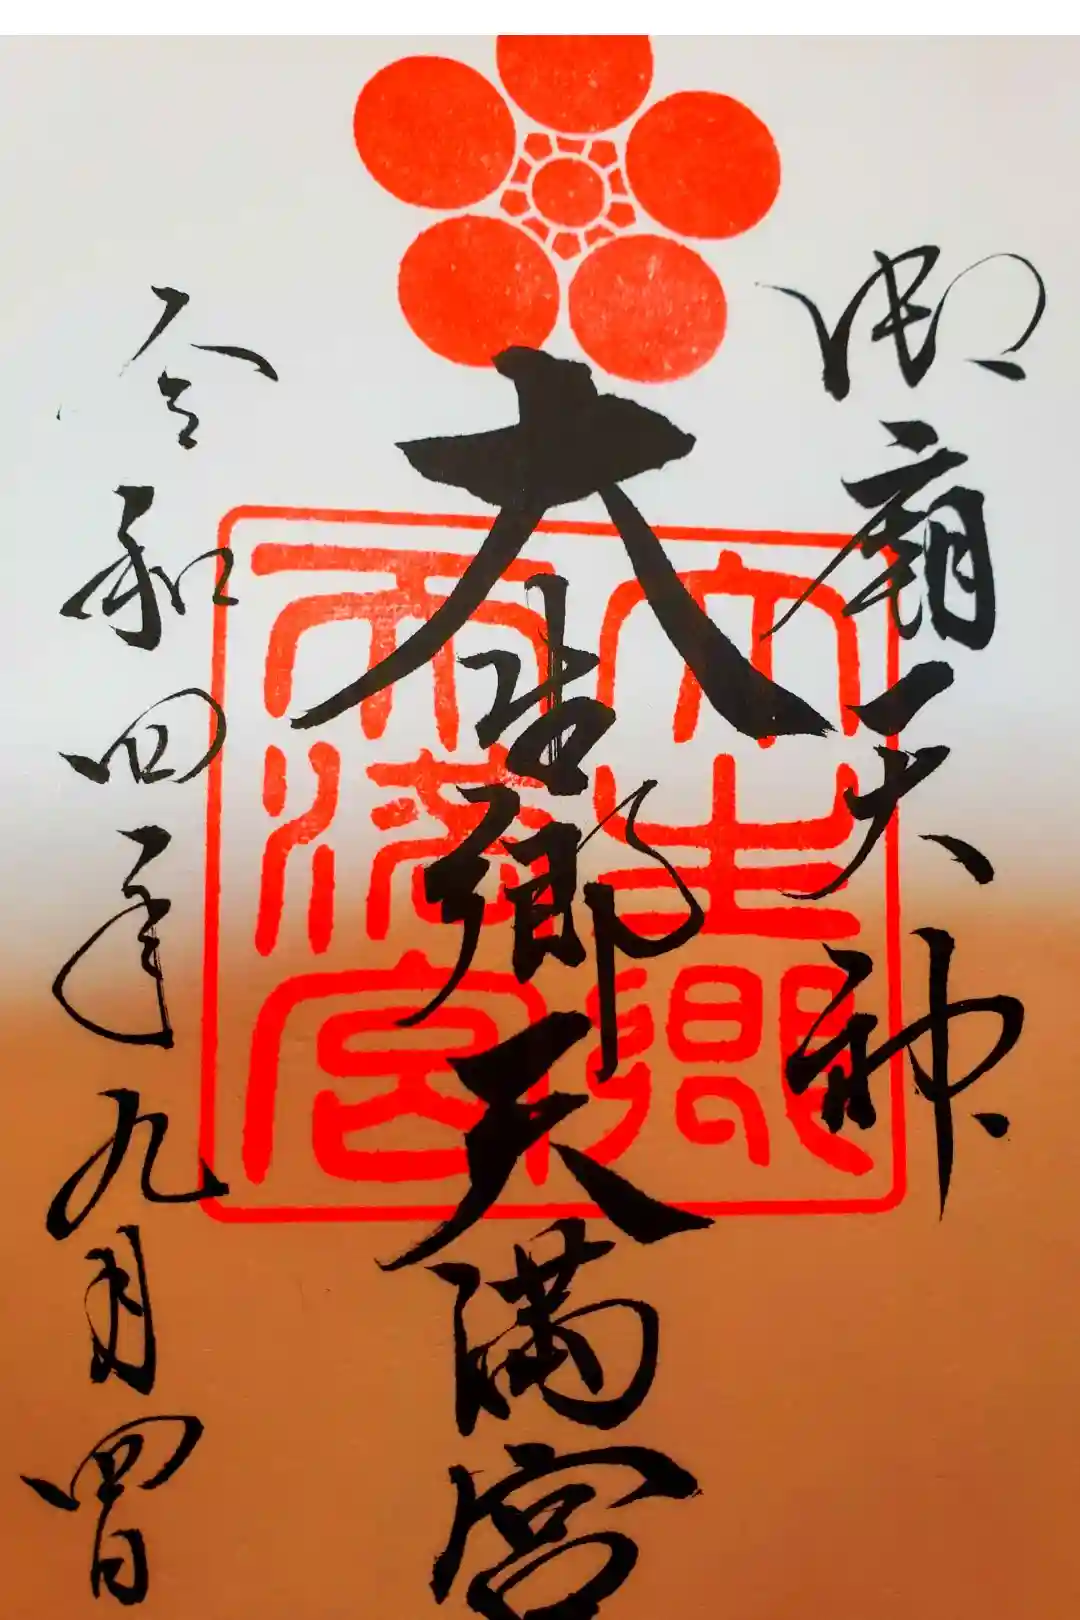 御廟天神
大生郷天満宮
令和四年九月四日
大生郷
天満宮